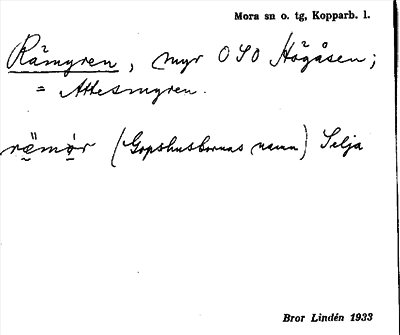 Mora sn o. tg, Kopparb. l.
Rämyren, myr OSO Högåsen;
= Attesmyren.
rämör (Gopshusbornas namn) Selja
Bror Lindén 1933